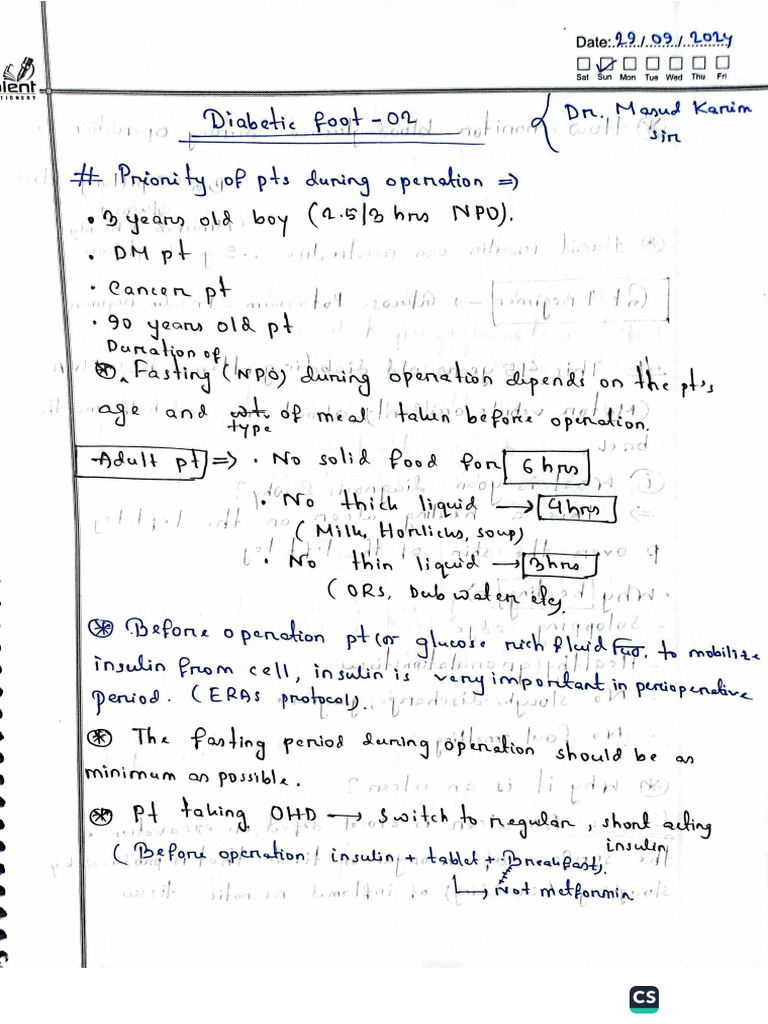 Date: 29/09/2024
Sat Sun Mon Tue Wed Thu Fri
lent
TIONERY
Diabetic foot -02
Dr. Masud Karim
sir
# Priority of pts during operation ⇒
• 3 years old boy (2.5/3 hrs NPO).
• DM pt
• Cancer pt
• 90 years old pt
Duration of
* Fasting (NPO) during operation dipends on the pt's
age and wt. of meal taken before operation.
type
Adult pt ⇒ • No solid food for 6 hrs
• No thick liquid → 4 hrs
(Milk, Horlicks, soup)
• No thin liquid → 3 hrs
(ORS, Dub water etc.
* Before operation pt কে glucose rich fluid দিতে হবে, to mobilize
insulin from cell, insulin is very important in perioperative
period. (ERAs protocol).
* The fasting period during operation should be as
minimum as possible.
* Pt taking OHD → switch to regular, short acting
insulin
(Before operation insulin + tablet + Breakfast).
↳ Not metformin
CS